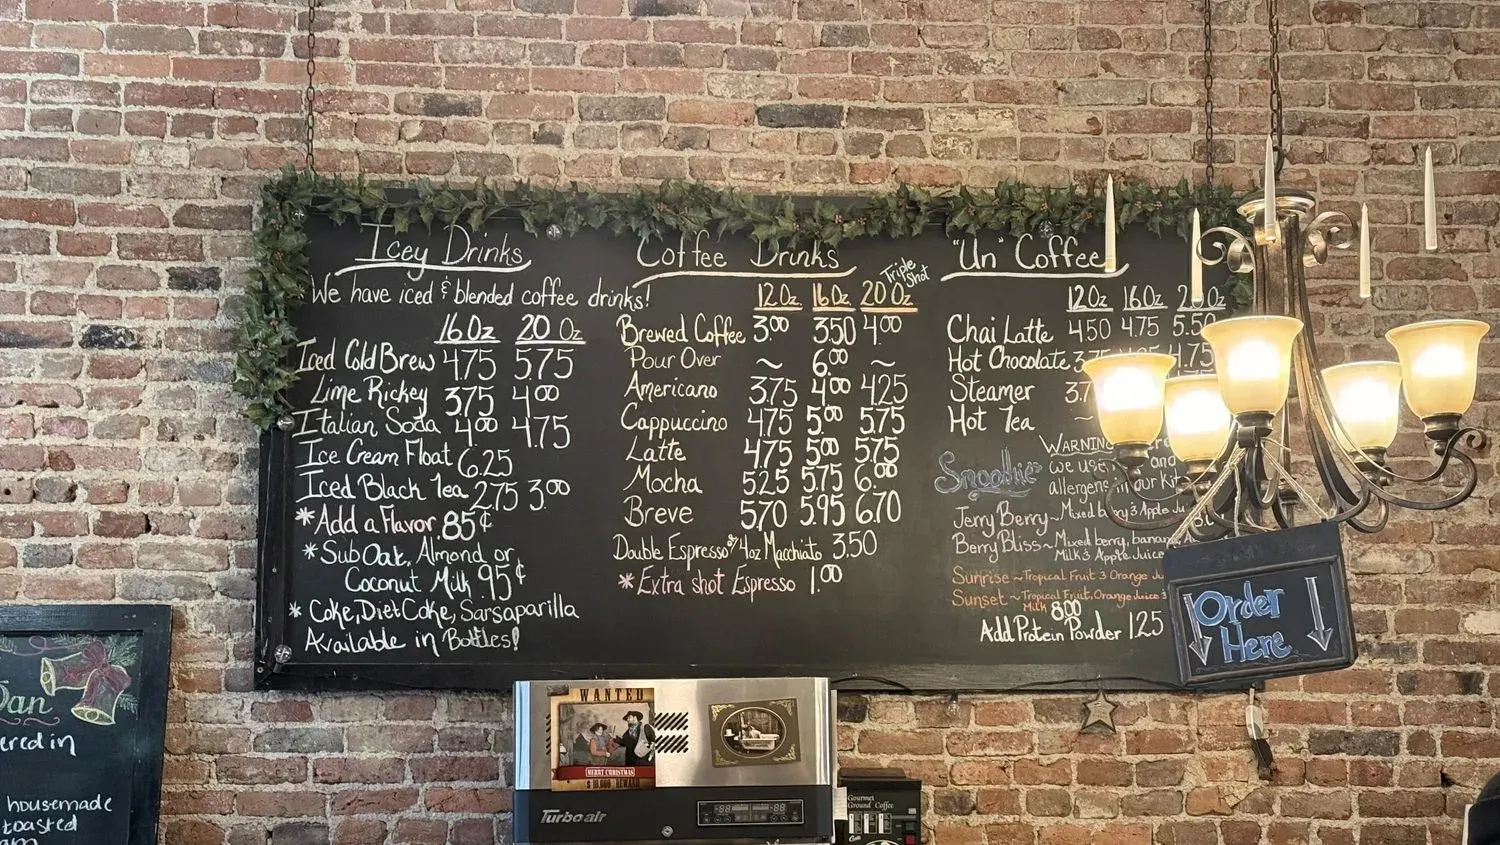 Icey Drinks
We have iced & blended coffee drinks!
16 Oz 20 Oz
Iced Cold Brew 4.75 5.75
Lime Rickey 3.75 4.00
Italian Soda 4.00 4.75
Ice Cream Float 6.25
Iced Black Tea 2.75 3.00
*Add a Flavor .85¢
*Sub Oat, Almond or
Coconut Milk .95¢
* Coke, Diet Coke, Sarsaparilla
Available in Bottles!
Coffee Drinks
Triple Shot
12 Oz 16 Oz 20 Oz
Brewed Coffee 3.00 3.50 4.00
Pour Over ~ 6.00 ~
Americano 3.75 4.00 4.25
Cappuccino 4.75 5.00 5.75
Latte 4.75 5.00 5.75
Mocha 5.25 5.75 6.00
Breve 5.70 5.95 6.70
Double Espresso or 4oz Macchiato 3.50
*Extra shot Espresso 1.00
"Un" Coffee
12 Oz 16 Oz 20 Oz
Chai Latte 4.50 4.75 5.50
Hot Chocolate 4.75
Steamer
Hot Tea ~
Smoothies
WARNING
we use and
allergens in our
Jerry Berry ~ Mixed berry & Apple
Berry Bliss ~ Mixed berry, banana
Milk & Apple Juice
Sunrise ~ Tropical Fruit & Orange
Sunset ~ Tropical Fruit, Orange Juice &
Milk 8.00
Add Protein Powder 1.25
Order
Here
ered in
housemade
toasted
WANTED
MERRY CHRISTMAS
REWARD
Turbo air
Gourmet
Ground Coffee